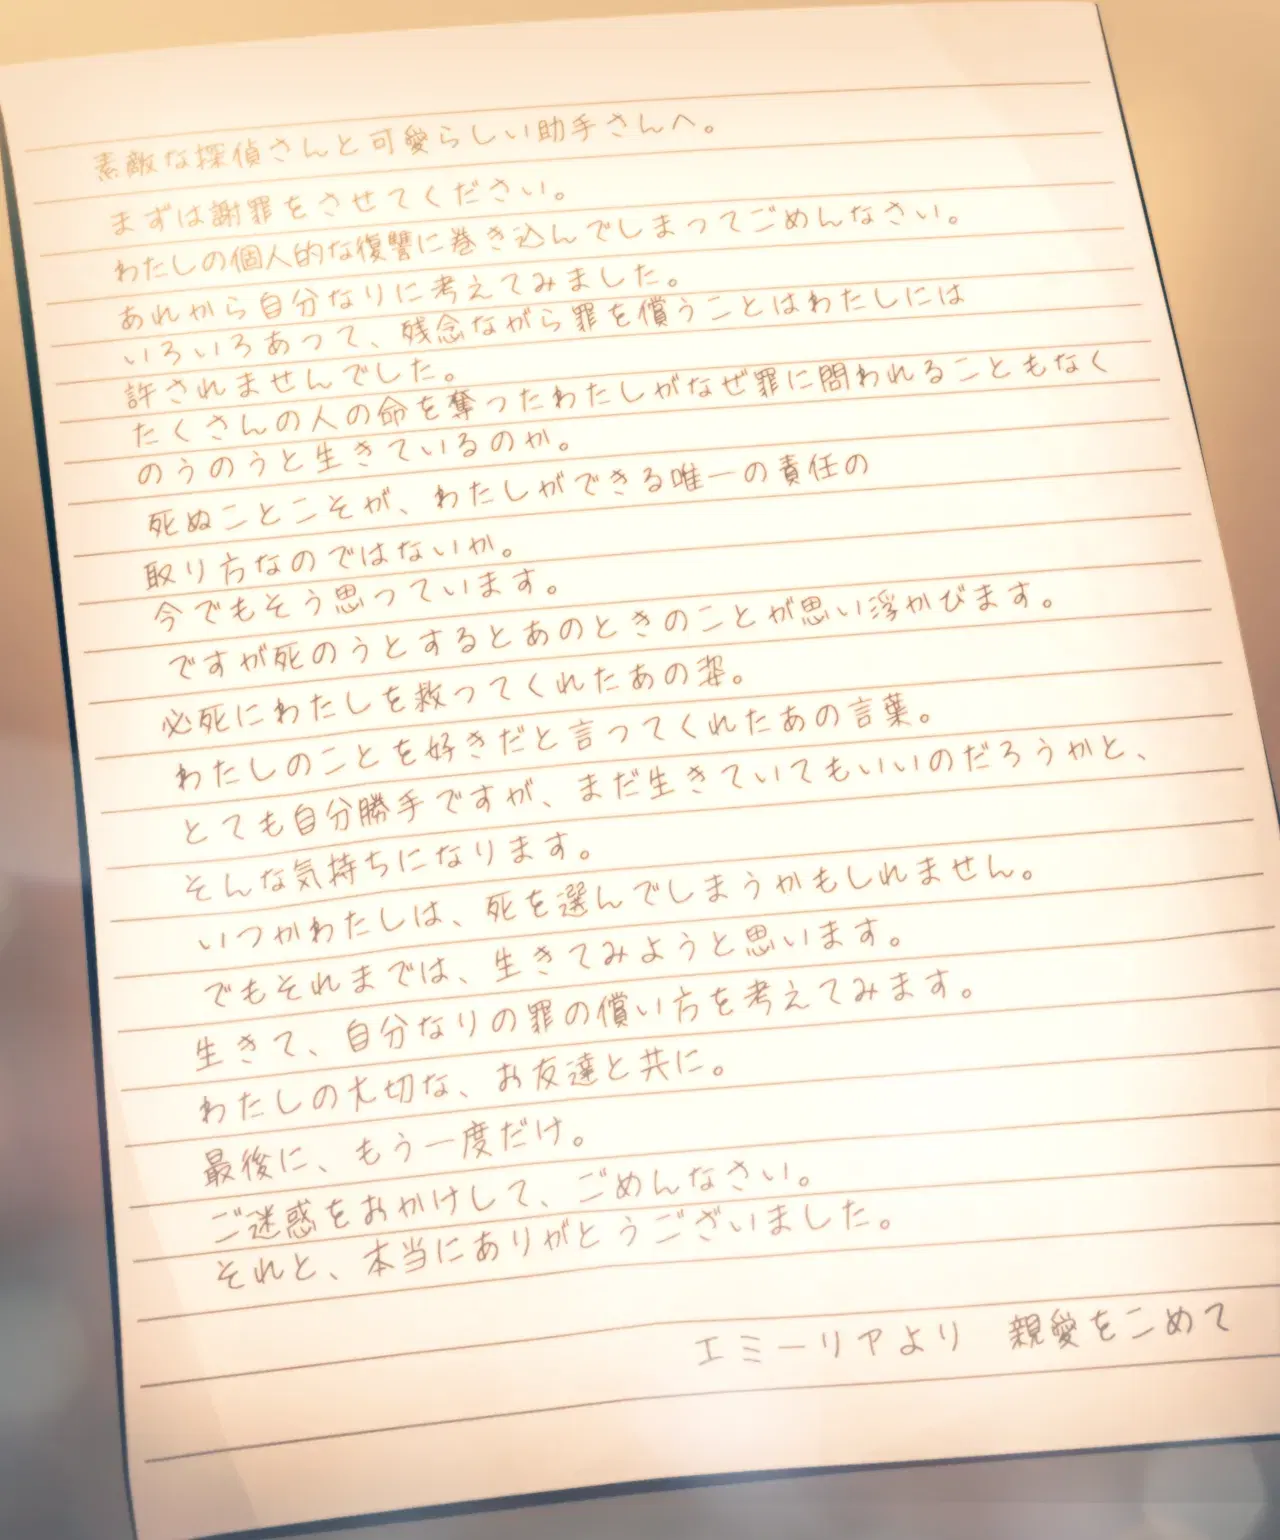 素敵な探偵さんと可愛らしい助手さんへ。
まずは謝罪をさせてください。
わたしの個人的な復讐に巻き込んでしまってごめんなさい。
あれから自分なりに考えてみました。
いろいろあって、残念ながら罪を償うことはわたしには
許されませんでした。
たくさんの人の命を奪ったわたしがなぜ罪に問われることもなく
のうのうと生きているのか。
死ぬことこそが、わたしができる唯一の責任の
取り方なのではないか。
今でもそう思っています。
ですが死のうとするとあのときのことが思い浮かびます。
必死にわたしを救ってくれたあの姿。
わたしのことを好きだと言ってくれたあの言葉。
とても自分勝手ですが、まだ生きていてもいいのだろうかと、
そんな気持ちになります。
いつかわたしは、死を選んでしまうかもしれません。
でもそれまでは、生きてみようと思います。
生きて、自分なりの罪の償い方を考えてみます。
わたしの大切な、お友達と共に。
最後に、もう一度だけ。
ご迷惑をおかけして、ごめんなさい。
それと、本当にありがとうございました。
エミーリアより 親愛をこめて